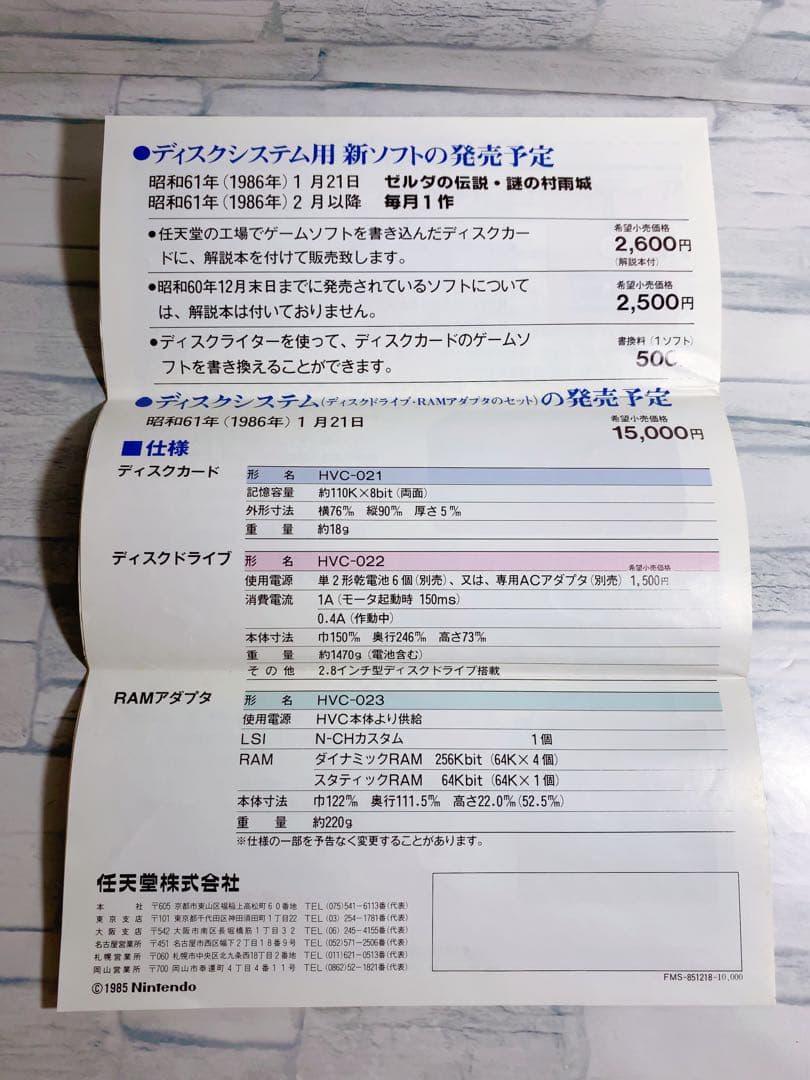 ●ディスクシステム用 新ソフトの発売予定
昭和61年(1986年)1月21日 ゼルダの伝説・謎の村雨城
昭和61年(1986年)2月以降 毎月1作
●任天堂の工場でゲームソフトを書き込んだディスクカー
ドに、解説本を付けて販売致します。
希望小売価格
2,600円
(解説本付)
●昭和60年12月末日までに発売されているソフトについて
は、解説本は付いておりません。
希望小売価格
2,500円
●ディスクライターを使って、ディスクカードのゲームソ
フトを書き換えることができます。
書換料(1ソフト)
500
●ディスクシステム(ディスクドライブ・RAMアダプタのセット)の発売予定
昭和61年(1986年)1月21日
希望小売価格
15,000円
■仕様
ディスクカード
形名 HVC-021
記憶容量 約110K×8bit(両面)
外形寸法 横76㎜ 縦90㎜ 厚さ5㎜
重量 約18g
ディスクドライブ
形名 HVC-022
希望小売価格
使用電源 単2形乾電池6個(別売)、又は、専用ACアダプタ(別売) 1,500円
消費電流 1A(モータ起動時 150ms)
0.4A(作動中)
本体寸法 巾150㎜ 奥行246㎜ 高さ73㎜
重量 約1470g(電池含む)
その他 2.8インチ型ディスクドライブ搭載
RAMアダプタ
形名 HVC-023
使用電源 HVC本体より供給
LSI N-CHカスタム 1個
RAM ダイナミックRAM 256Kbit(64K×4個)
スタティックRAM 64Kbit(64K×1個)
本体寸法 巾122㎜ 奥行111.5㎜ 高さ22.0㎜(52.5㎜)
重量 約220g
※仕様の一部を予告なく変更することがあります。
任天堂株式会社
本社 〒605 京都市東山区福稲上高松町60番地 TEL(075)541-6113番(代表)
東京支店 〒101 東京都千代田区神田須田町1丁目22 TEL(03)254-1781番(代表)
大阪支店 〒542 大阪市南区長堀橋筋1丁目32 TEL(06)245-4155番(代表)
名古屋営業所 〒451 名古屋市西区幅下2丁目18番9号 TEL(052)571-2506番(代表)
札幌営業所 〒060 札幌市中央区北九条西18丁目2番地 TEL(011)621-0513番(代表)
岡山営業所 〒700 岡山市奉還町4丁目4番11号 TEL(0862)52-1821番(代表)
©1985 Nintendo
FMS-851218-10,000